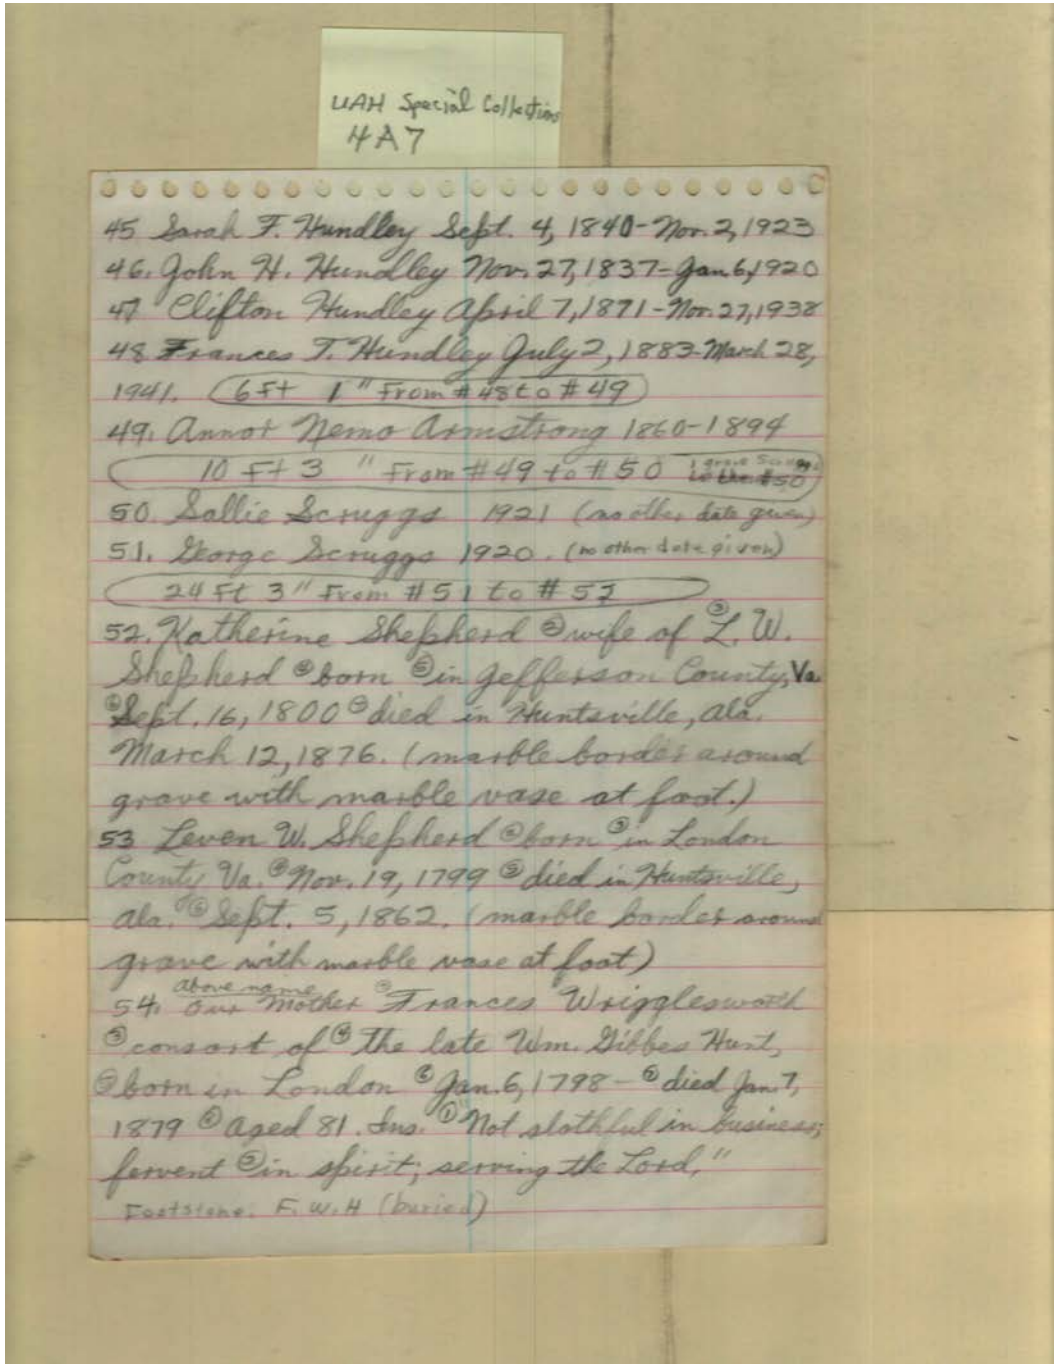 UAH Special Collections
4A7
45 Sarah F. Hundley Sept. 4, 1840-Nov. 2, 1923
46. John H. Hundley Nov. 27, 1837-Jan 6, 1920
47 Clifton Hundley April 7, 1871-Nov. 27, 1938
48 Frances T. Hundley July 2, 1883-March 28,
1941. 6 Ft 1" From #48 to #49
49. Annot Nemo Armstrong 1860-1894
10 Ft 3 " From #49 to #50 1 grave
#50
50. Sallie Scruggs 1921 (no other date given)
51. George Scruggs 1920. (no other date given)
24 Ft 3" From #51 to #52
52. Katherine Shepherd ② wife of ③ L. W.
Shepherd ④ born ⑤ in Jefferson County, Va.
⑥ Sept. 16, 1800 ⑦ died in Huntsville, Ala.
March 12, 1876. (marble border around
grave with marble vase at foot.)
53 Leven W. Shepherd ② born ③ in London
County Va. ④ Nov. 19, 1799 ⑤ died in Huntsville,
Ala. ⑥ Sept. 5, 1862. (marble border around
grave with marble vase at foot)
above name
54. Our Mother ② Frances Wrigglesworth
③ consort of ④ The late Wm. Gibbes Hunt,
⑤ born in London ⑥ Jan. 6, 1798- ⑦ died Jan. 7,
1879 ⑧ Aged 81. Ins. ① "Not slothful in business;
fervent ② in spirit; serving the Lord."
Footstone: F. W. H (buried)